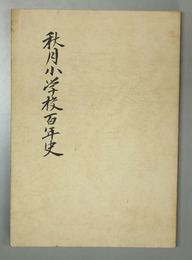 秋月小学校百年史